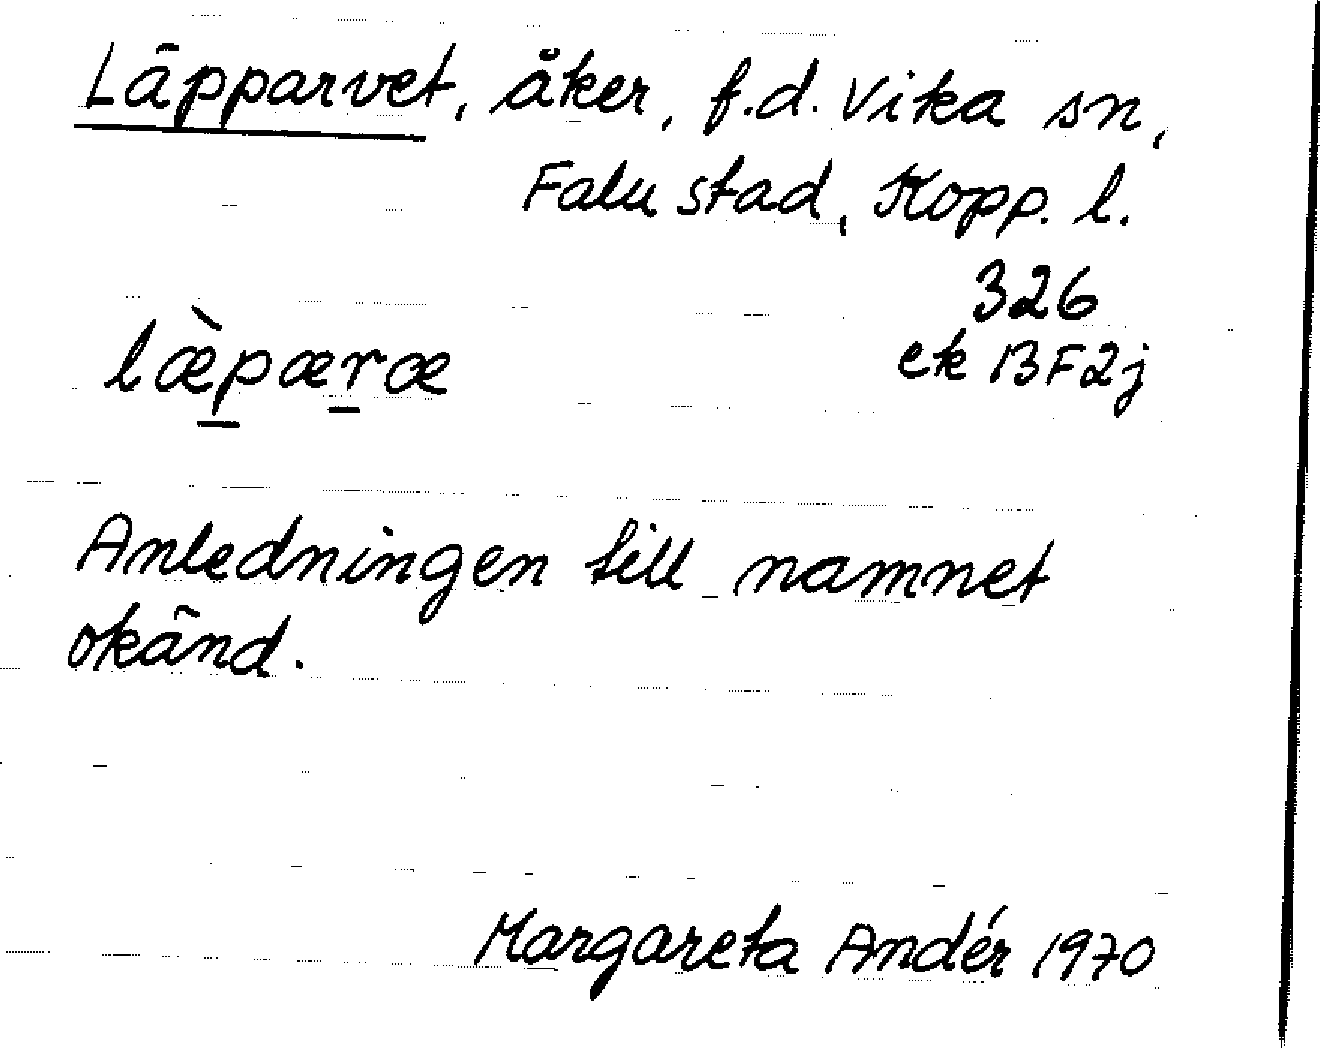 Läpparvet, åker, f.d. Vika sn,
Falu stad, Kopp. l.
326
ek 13F2j
læ̀pæræ
Anledningen till namnet
okänd.
Margareta Andér 1970